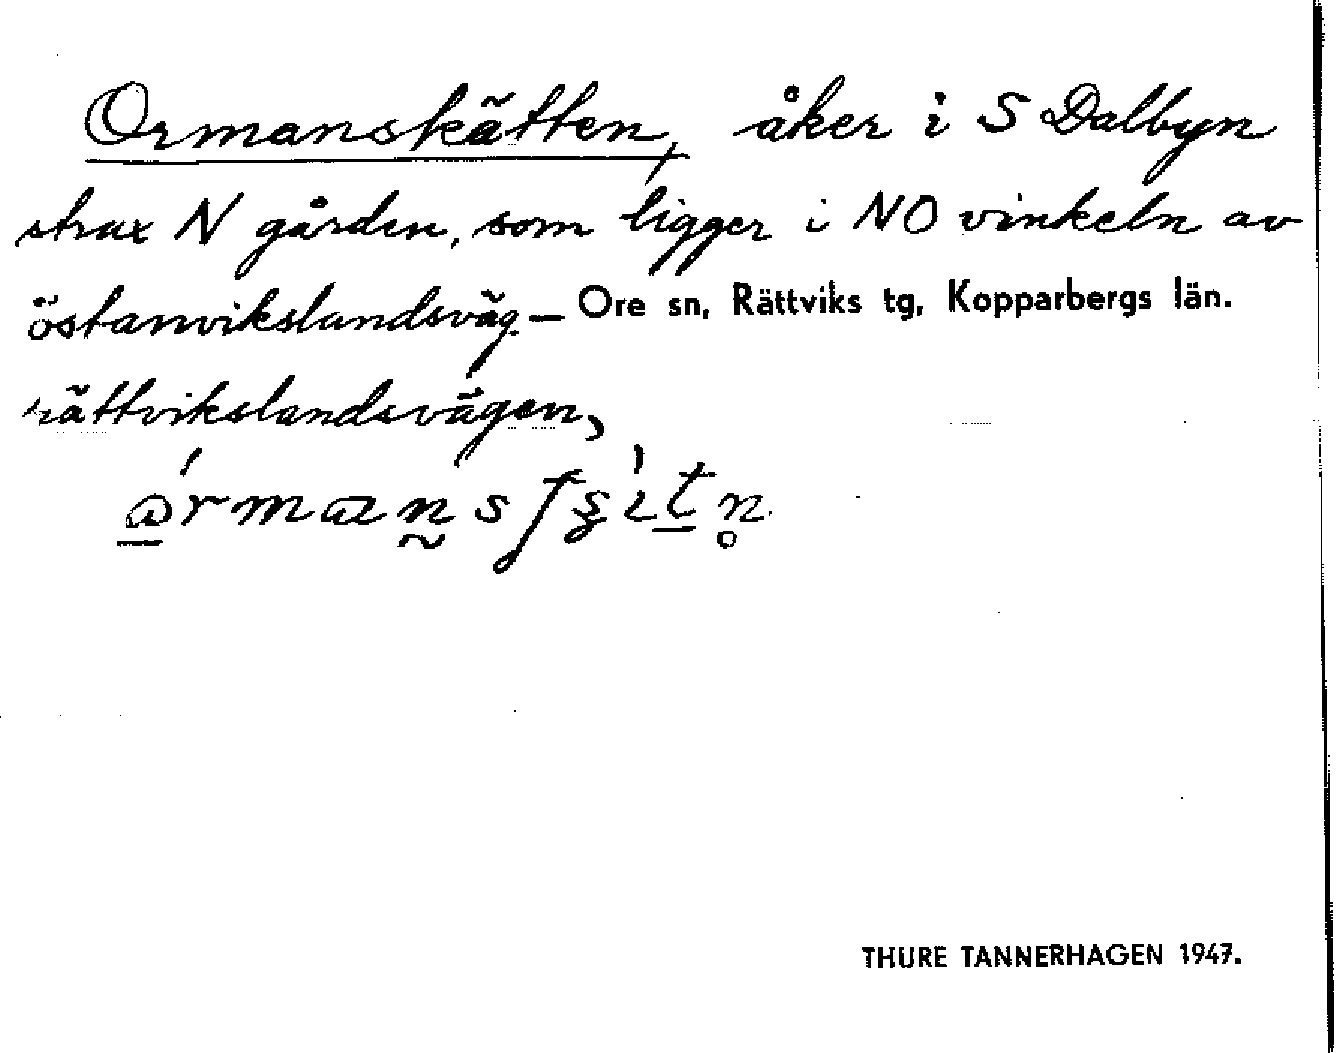 Ormanskätten, åker i S Dalbyn
strax N gården, som ligger i NO vinkeln av
östanvikslandsväg. — Ore sn, Rättviks tg, Kopparbergs län.
rättvikslandsvägen,
THURE TANNERHAGEN 1947.